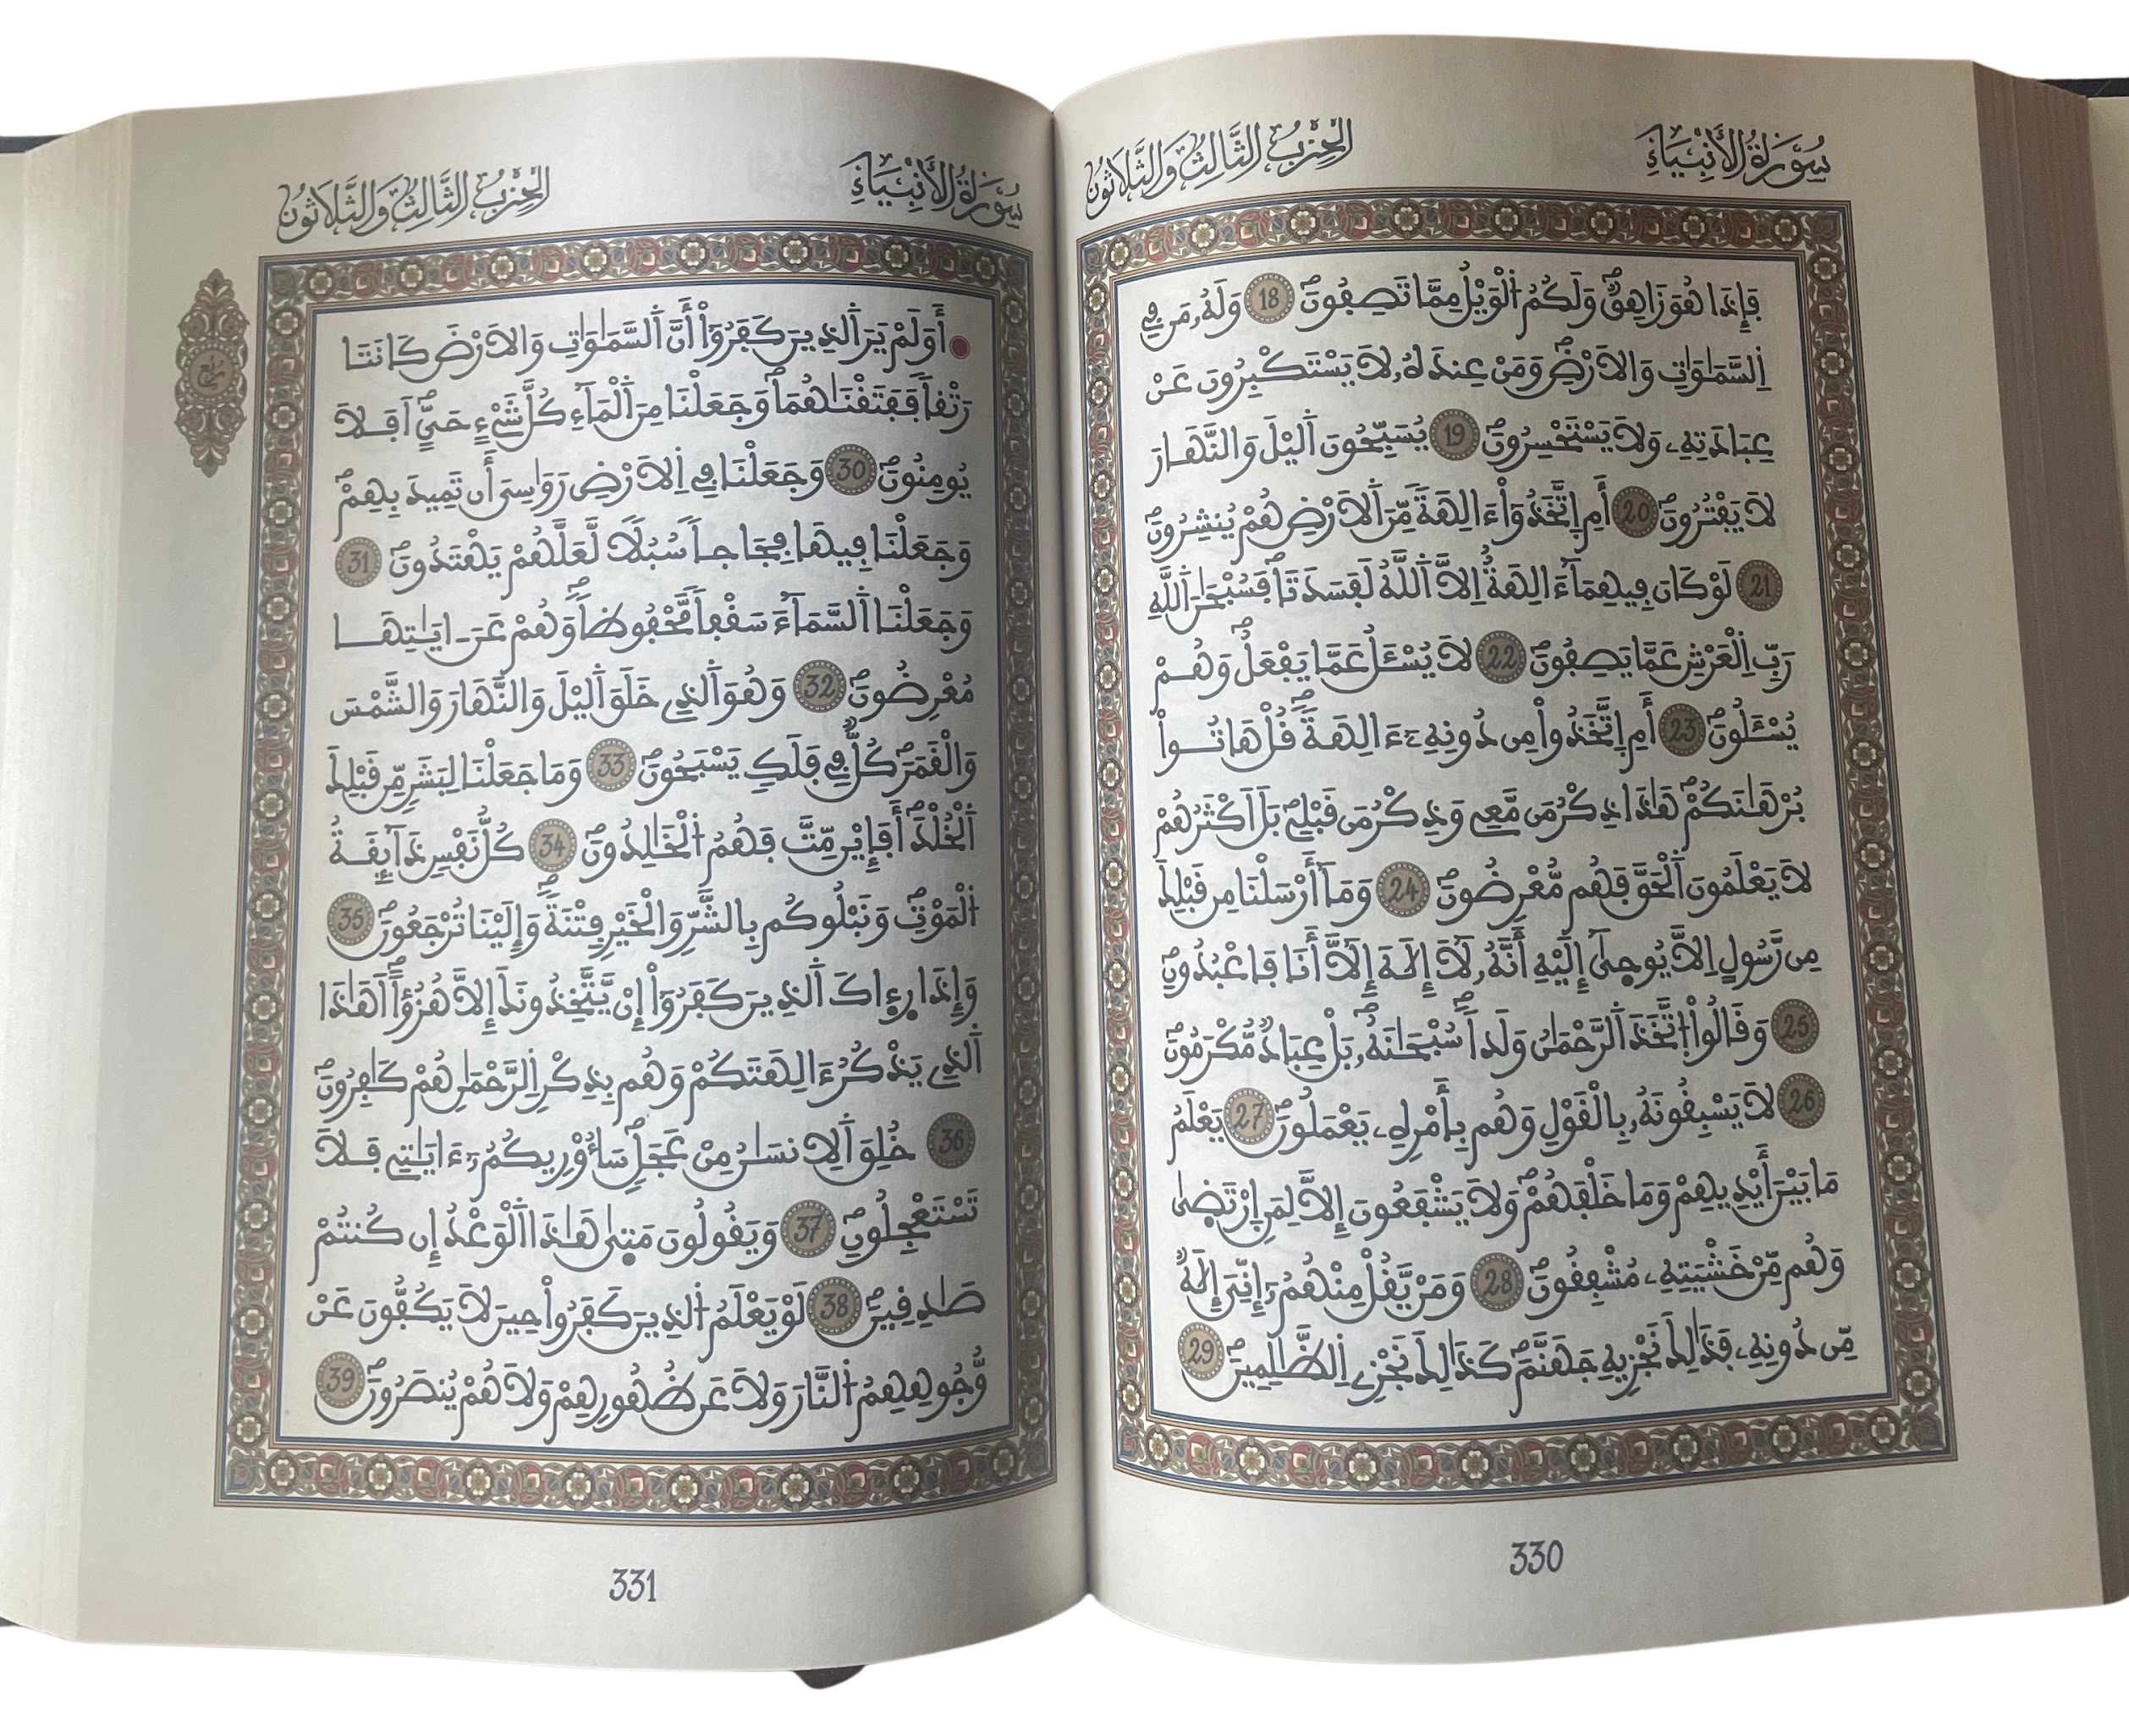 سُورَةُ الأَنْبِيَاءِ
الحِزْبُ الثَّالِثُ وَالثَّلَاثُونَ
فَإِذَا هُوَ زَاهِقٞۖ وَلَكُمُ اُ۬لْوَيْلُ مِمَّا تَصِفُونَۖ 18 وَلَهُۥ مَن فِے
اِ۬لسَّمَٰوَٰتِ وَالَارْضِۖ وَمَنْ عِندَهُۥ لَا يَسْتَكْبِرُونَ عَنْ
عِبَادَتِهِۦ وَلَا يَسْتَحْسِرُونَۖ 19 يُسَبِّحُونَ اَ۬ليْلَ وَالنَّهَارَ
لَا يَفْتُرُونَۖ 20 أَمِ اِ۪تَّخَذُوٓاْ ءَالِهَةٗ مِّنَ اَ۬لَارْضِ هُمْ يُنشِرُونَۖ
21 لَوْ كَانَ فِيهِمَآ ءَالِهَةٌ اِلَّا اَ۬للَّهُ لَفَسَدَتَاۖ فَسُبْحَٰنَ اَ۬للَّهِ
رَبِّ اِ۬لْعَرْشِ عَمَّا يَصِفُونَۖ 22 لَا يُسْـَٔلُ عَمَّا يَفْعَلُۖ وَهُمْ
يُسْـَٔلُونَۖ 23 أَمِ اِ۪تَّخَذُواْ مِن دُونِهِۦٓ ءَالِهَةٗۖ قُلْ هَاتُواْ
بُرْهَٰنَكُمْۖ هَٰذَا ذِكْرُ مَن مَّعِے وَذِكْرُ مَن قَبْلِےۖ بَلَ اَكْثَرُهُمْ
لَا يَعْلَمُونَ اَ۬لْحَقَّ فَهُم مُّعْرِضُونَۖ 24 وَمَآ أَرْسَلْنَا مِن قَبْلِكَ
مِن رَّسُولٍ اِلَّا يُوح۪يٰٓ إِلَيْهِ أَنَّهُۥ لَآ إِلَٰهَ إِلَّآ أَنَا فَاعْبُدُونِۖ
25 وَقَالُواْ اُ۪تَّخَذَ اَ۬لرَّحْمَٰنُ وَلَداٗۖ سُبْحَٰنَهُۥۖ بَلْ عِبَادٞ مُّكْرَمُونَۖ
26 لَا يَسْبِقُونَهُۥ بِالْقَوْلِ وَهُم بِأَمْرِهِۦ يَعْمَلُونَۖ 27 يَعْلَمُ
مَا بَيْنَ أَيْدِيهِمْ وَمَا خَلْفَهُمْۖ وَلَا يَشْفَعُونَ إِلَّا لِمَنِ اِ۪رْتَض۪يٰ
وَهُم مِّنْ خَشْيَتِهِۦ مُشْفِقُونَۖ 28 وَمَنْ يَّقُلْ مِنْهُمُۥٓ إِنِّيَ إِلَٰهٞ
مِّن دُونِهِۦ فَذَٰلِكَ نَجْزِيهِ جَهَنَّمَۖ كَذَٰلِكَ نَجْزِے اِ۬لظَّٰلِمِينَۖ 29
330
سُورَةُ الأَنْبِيَاءِ
الحِزْبُ الثَّالِثُ وَالثَّلَاثُونَ
أَوَلَمْ يَرَ اَ۬لذِينَ كَفَرُوٓاْ أَنَّ اَ۬لسَّمَٰوَٰتِ وَالَارْضَ كَانَتَا
رَتْقاٗ فَفَتَقْنَٰهُمَاۖ وَجَعَلْنَا مِنَ اَ۬لْمَآءِ كُلَّ شَےْءٍ حَيٍّۖ اَفَلَا
يُومِنُونَۖ 30 وَجَعَلْنَا فِے اِ۬لَارْضِ رَوَٰسِيَ أَن تَمِيدَ بِهِمْۖ
وَجَعَلْنَا فِيهَا فِجَاجاٗ سُبُلاٗ لَّعَلَّهُمْ يَهْتَدُونَۖ 31
وَجَعَلْنَا اَ۬لسَّمَآءَ سَقْفاٗ مَّحْفُوظاٗۖ وَهُمْ عَنَ اٰيَٰتِهَا
مُعْرِضُونَۖ 32 وَهُوَ اَ۬لذِے خَلَقَ اَ۬ليْلَ وَالنَّهَارَ وَالشَّمْسَ
وَالْقَمَرَۖ كُلّٞ فِے فَلَكٖ يَسْبَحُونَۖ 33 وَمَا جَعَلْنَا لِبَشَرٖ مِّن قَبْلِكَ
اَ۬لْخُلْدَۖ أَفَإِيْن مِّتَّ فَهُمُ اُ۬لْخَٰلِدُونَۖ 34 كُلُّ نَفْسٖ ذَآئِقَةُ
اُ۬لْمَوْتِۖ وَنَبْلُوكُم بِالشَّرِّ وَالْخَيْرِ فِتْنَةٗۖ وَإِلَيْنَا تُرْجَعُونَۖ 35
وَإِذَا رِء۪اكَ اَ۬لذِينَ كَفَرُوٓاْ إِنْ يَّتَّخِذُونَكَ إِلَّا هُزُؤاًۖ اَهَٰذَا
اَ۬لذِے يَذْكُرُ ءَالِهَتَكُمْ وَهُم بِذِكْرِ اِ۬لرَّحْمَٰنِ هُمْ كَٰفِرُونَۖ
36 خُلِقَ اَ۬لِانسَٰنُ مِنْ عَجَلٖۖ سَأُوْرِيكُمُۥٓ ءَايَٰتِے فَلَا
تَسْتَعْجِلُونِۖ 37 وَيَقُولُونَ مَت۪يٰ هَٰذَا اَ۬لْوَعْدُ إِن كُنتُمْ
صَٰدِقِينَۖ 38 لَوْ يَعْلَمُ اُ۬لذِينَ كَفَرُواْ حِينَ لَا يَكُفُّونَ عَنْ
وُّجُوهِهِمُ اُ۬لنَّارَ وَلَا عَن ظُهُورِهِمْ وَلَا هُمْ يُنصَرُونَۖ 39
331